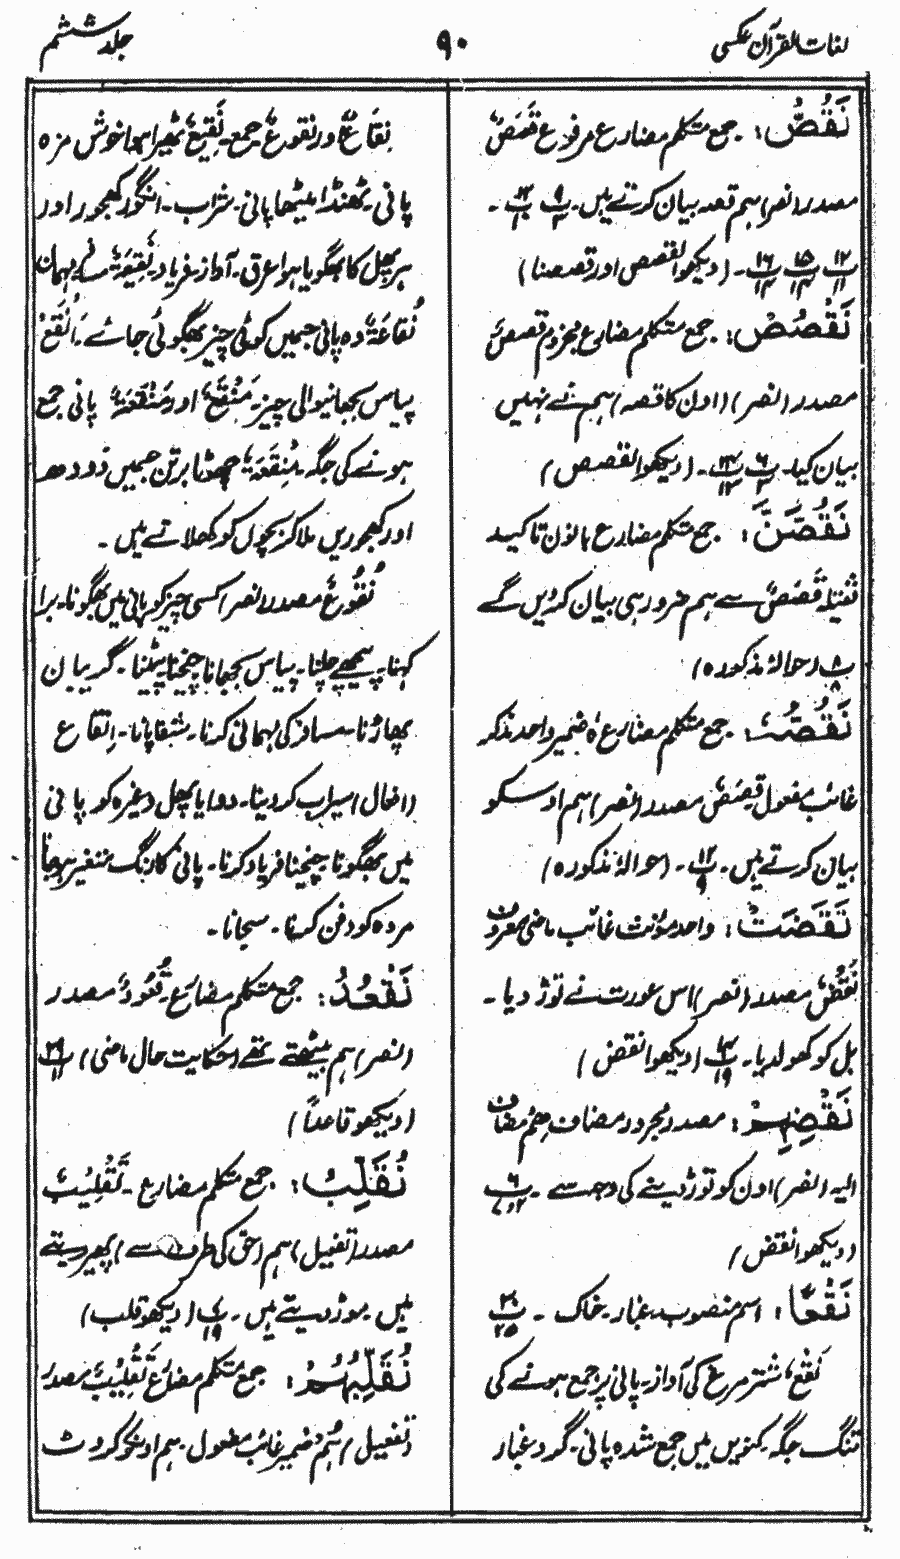 لغات القرآن عکسی
۹۰
جلد ششم
نَقُصُّ: جمع متکلم مضارع مرفوع قَصَصٌ
مصدر (نصر) ہم قصہ بیان کرتے ہیں۔
(دیکھو القصص اور قصصنا)
نَقْصُصْ: جمع متکلم مضارع مجزوم قصصٌ
مصدر (نصر) (اون کا قصہ) ہم نے نہیں
بیان کیا۔ پ (دیکھو القصص)
نَقُصَّنَّ: جمع متکلم مضارع بانون تاکید
ثقیلہ قَصَصٌ سے ہم ضرور ہی بیان کریں گے
پ ۸ (حوالہ مذکورہ)
نَقُصُّہٗ: جمع متکلم مضارع ہٗ ضمیر واحد مذکر
غائب مفعول قَصَصٌ مصدر (نصر) ہم اوسکو
بیان کرتے ہیں۔ پ ۱۲ ۔ (حوالہ مذکورہ)
نَقَضَتْ: واحد مؤنث غائب ماضی معروف
نَقْضٌ مصدر (نصر) اس عورت نے توڑ دیا۔
بل کو کھولدیا۔ پ ۱۴ (دیکھو انقض)
نَقْضِہِمْ: مصدر مجرور مضاف ھِمْ مضاف
الیہ (نصر) اون کو توڑ دینے کی وجہ سے۔ پ ۶
(دیکھو انقض)
نَقْعًا: اسم منصوب۔ غبار۔ خاک۔ پ ۳۰
نَقْعٌ شتر مرغ کی آواز۔ پانی پر جمع ہونے کی
تنگ جگہ۔ کنویں میں جمع شدہ پانی۔ گرد وغبار
نِقَاعٌ اور نقوعٌ جمع۔ نَقِیْعٌ ٹھیرا ہوا خوش مزہ
پانی۔ ٹھنڈا میٹھا پانی۔ شراب۔ انگور کھجور اور
ہر پھل کا بھگویا ہوا عرق۔ آواز۔ فریاد۔ نَقِیْعَۃٌ
نُقَاعَۃٌ وہ پانی جسمیں کوئی چیز بھگوئی جائے۔ اَنْقَعُ
پیاس بجھانیوالی چیز۔ مَنْقَعٌ اور مَنْقَعَۃٌ پانی جمع
ہونے کی جگہ۔ مِنْقَعَۃٌ چھوٹا برتن جسمیں دودھ
اور کھجوریں ملا کر بچوں کو کھلاتے ہیں۔
نُقُوْعٌ مصدر (نصر) کسی چیز کو پانی میں بھگونا۔ برا
کہنا۔ پیچھے چلنا۔ پیاس بجھانا چیخنا پیٹنا۔ گریبان
پھاڑنا۔ مسافر کی مہمانی کرنا۔ شفا پانا۔ اِنْقَاع
(افعال) سیراب کر دینا۔ دوا یا پھل وغیرہ کو پانی
میں بھگونا۔ چیخنا فریاد کرنا۔ پانی کا رنگ متغیر ہو جانا
مردہ کو دفن کرنا۔
نَقْعُدُ: جمع متکلم مضارع۔ قُعُوْدٌ مصدر
(نصر) ہم بیٹھتے تھے (حکایت حال ماضی) پ ۲۹
(دیکھو قاعداً)
نُقَلِّبُ: جمع متکلم مضارع۔ تَقْلِیْبٌ
مصدر (تفعیل) ہم (حق کی طرف سے) پھیر دیتے
ہیں۔ موڑ دیتے ہیں۔ پ ۷ (دیکھو قلب)
نُقَلِّبُہُمْ: جمع متکلم مضارع تَقْلِیْبٌ مصدر
(تفعیل) ہُمْ ضمیر غائب مفعول۔ ہم اونکو کروٹ